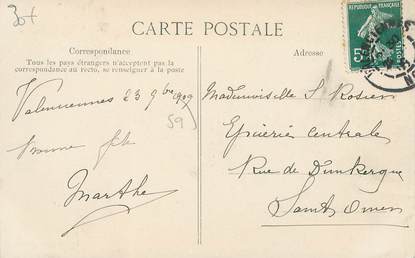 CARTE POSTALE
Correspondance
Tous les pays étrangers n'acceptent pas la
correspondance au recto, se renseigner à la poste
Valenciennes 23 9bre 1909
59
bonne fête
Marthe
Adresse
REPUBLIQUE FRANÇAISE
5c
Mademoiselle S. Rosier
Epicerie centrale
Rue de Dunkerque
Saint Omer